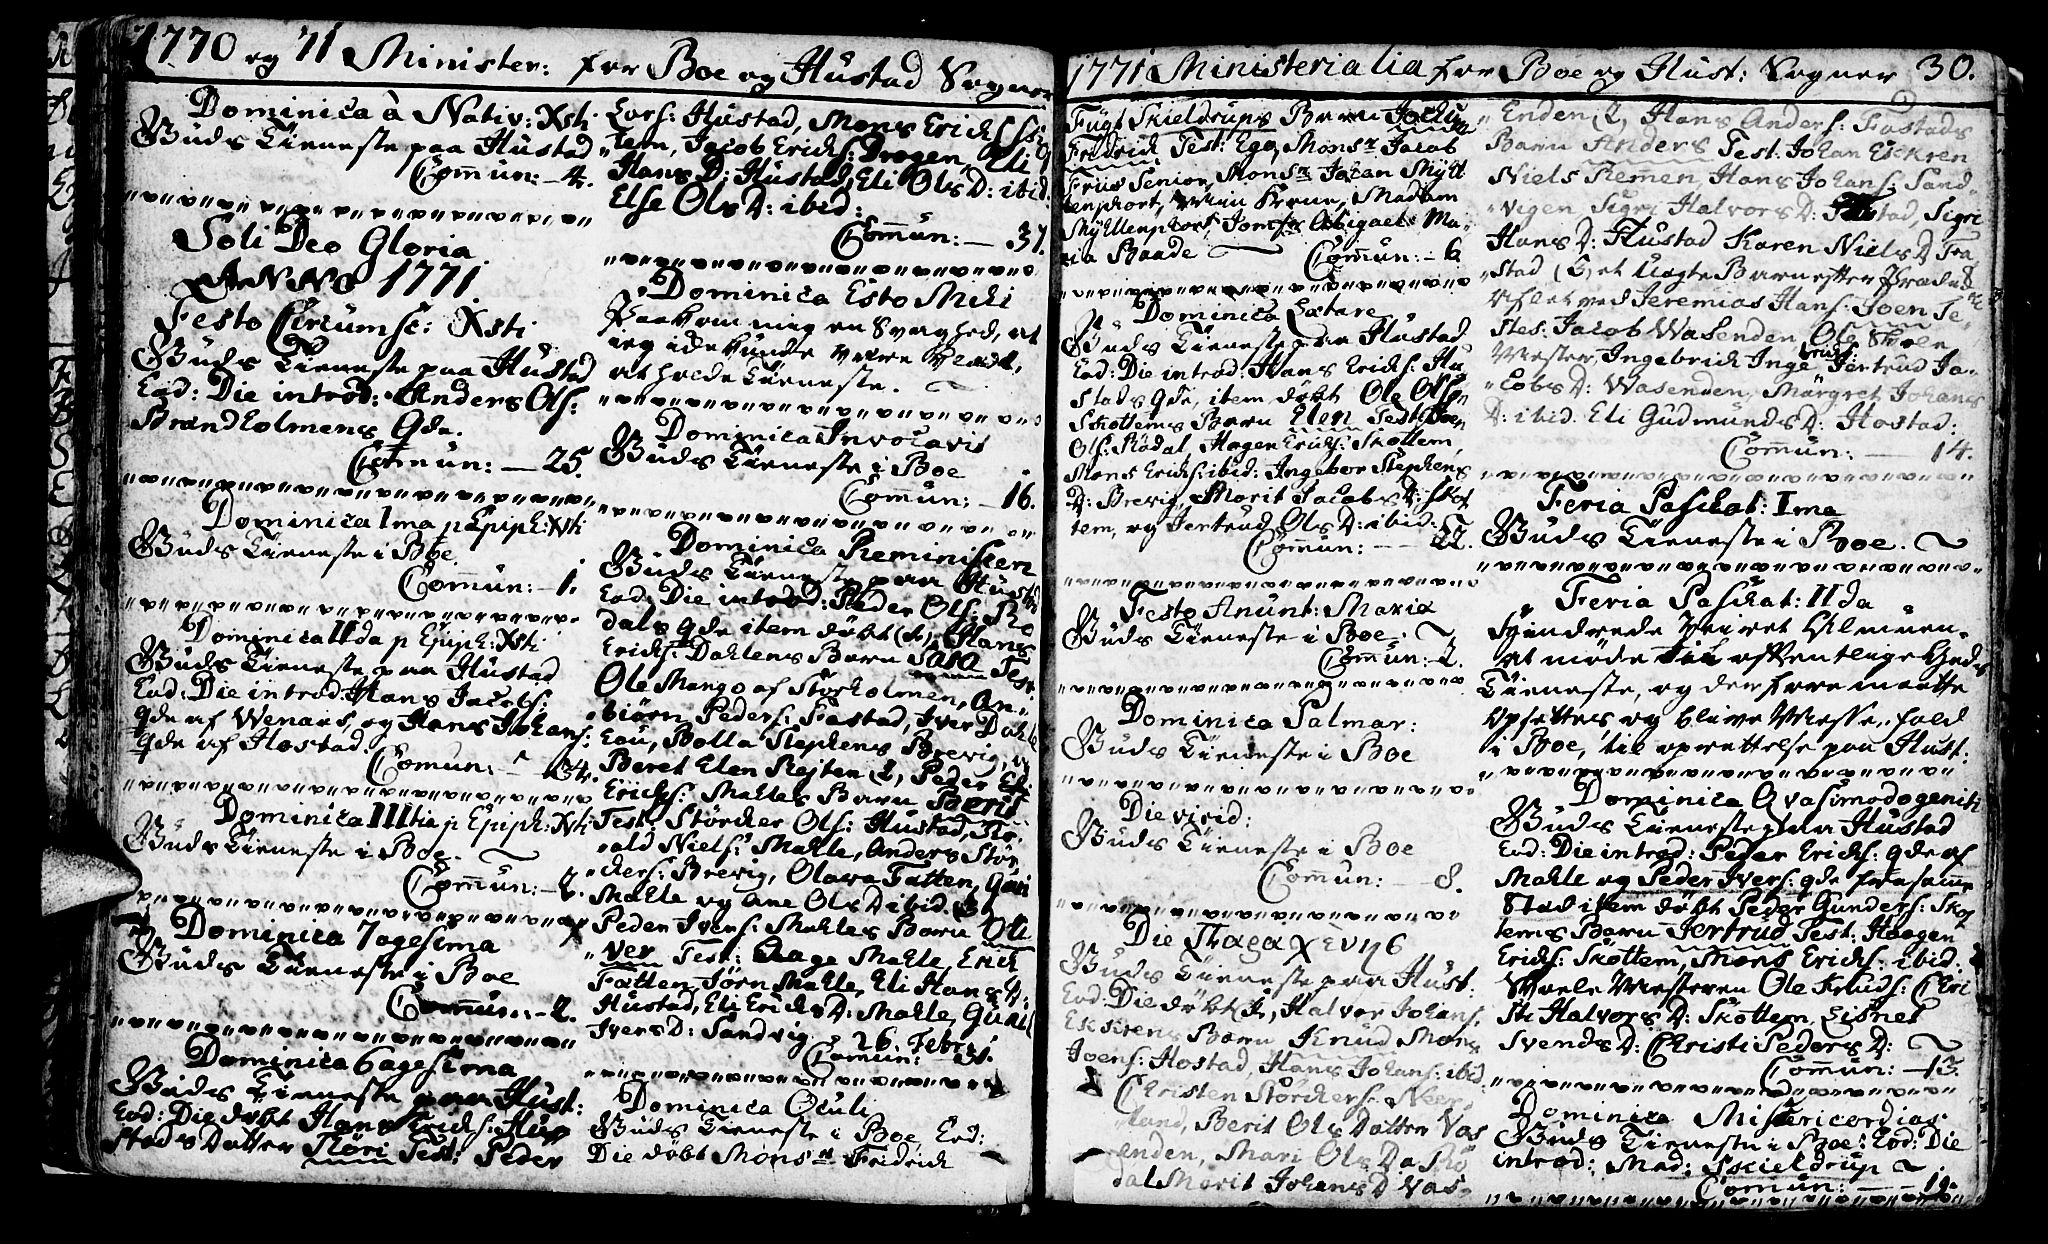 1770 og 71 Minister: for Boe og Hustad Sogner
Dominica à Nativ: Xsti
Guds Tieneste paa Hustad
Com̄un: — 4.
Soli Deo Gloria
ANNO 1771.
Festo Circumsc: Xsti
Guds Tieneste paa Hustad
Eod: Die introd: Anders Ols:
Brandholmens Qde.
Com̄un: — 25.
Dominica Ima p Epiph: Xti
Guds Tieneste i Boe
Com̄un: — 1.
Dominica IIda p Epiph: Xsti
Guds Tieneste paa Hustad
Eod: Die introd: Hans Jacobs:
qde af Wenaas, og Hans Johans:
qde af Hostad
Com̄un:
Dominica IIItia p Epiph: Xti
Guds Tieneste i Boe.
Com̄un: — 2.
Dominica 7agesima
Guds Tieneste i Boe
Com̄un: — 2.
Dominica 6agesima
Guds Tieneste paa Hust:
Eod: Die döbt Hans Erichs: Hu-
stads Datter Störi Test: Peder
Lars: Hustad, Mons Erichs:
-tem, Jacob Erichs: Drogen, Eli
Hans D: Hustad, Eli Ols D: ibid.
Else Ols D: ibid:
Com̄un: — 37.
Dominica Esto Mihi
Paakom mig en Svaghed, at
ieg icke kunde være i stand,
at holde Tieneste.
Dominica Invocavit
Guds Tieneste i Boe
Com̄un: — 16.
Dominica Reminiscere
Guds Tieneste paa Hustad
Eod: Die introd: Peder Ols: Rö-
dals qde item döbt (1, Hans
Erichs: Dahlens Barn Sara Test:
Ole Mango af Storholmen, An-
-biörn Peders: Fastad, Iver Dahle
Eau, Bolla Stephens Brevig, og
Beret Elen Reiten (2, Peder
Erichs: Mahles Barn Berit
Test: Störcker Ols: Hustad, Tho-
-rald Niels: Mahle, Anders Stör-
-ckers: Brevig, Olava Tatten, Guri
Mahle og Ane Ols D ibid. (3,
Peder Ivers: Mahles Barn Oli
ver Test: Aage Mahle, Erich
Fatten, Jörn Mahle, Eli Hans D:
Hustad, Eli Erichs D: Mahle, Guri
Ivers D: Sandvig. 26. Febr:
Com̄un: 31.
Dominica Oculi
Guds Tieneste i Boe Eod:
Die döbt Monsr Fridrich
1771 Ministerialia for Boe og Hust: Sogner 30.
Fügl Skieldrups Barn Jochum
Fridrich Test: Ego, Monsr Jacob
Friis Senior, Monsr Johan Mylt
tenphort, Min Kone, Madam
Myltenphort, Jomfr Abigael Ma-
ria Baade Com̄un: — 6
Dominica Lætare
Guds Tieneste paa Hustad
Eod: Die introd: Hans Erichs: Hu-
stads qde, item döbt Ole Ols:
Skottems Barn Elen Test: Joen
Ols: Rödal, Hagen Erichs: Skottem,
Mons Erichs: ibid: Ingebor Stephens
D: Brevig, Marit Jacobs D: Skot
tem, og Jertrud Ols D: ibid:
Com̄un: — 22.
Festo Anunt: Mariæ
Guds Tieneste i Boe.
Com̄un: 2.
Dominica Palmar:
Guds Tieneste i Boe
Die virid:
Guds Tieneste i Boe
Com̄un: — 8.
Die
Guds Tieneste paa Hust:
Eod: Die döbt (1, Halvor Johans:
Eckrens Barn Knud Mons
Joens: Hostad, Hans Johans: ibid.
Christen Störckers: Neer-
land, Berit Ols Datter Vas
enden, Mari Ols D: Rö
dal Marit Johans D Vas-
-Enden, (2, Hans Anders: Fastads
Barn Anders Test. Johan Eckren
Niels Remen, Hans Johans: Sand-
-vigen, Sigri Halvors D: Hustad, Sigri
Hans D: Hustad Karen Niels D Fa-
-stad (3, et Uægte Barn efter
aflet ved Jeremias Hans: Soen Te-
stes: Jacob Wasenden, Ole Skole
Mester, Ingebrich Inge brichs: Jertrud Ja-
-cobs D: Wasenden, Margret Johans
D: ibid. Eli Gudmunds D: Hostad:
Com̄un: — 14.
Feria Paschat: Ima
Guds Tieneste i Boe.
Feria Paschat: IIda
hindrede Veiret Almuen
at möde til offentlige Guds
Tieneste, og derfore maatte
Opsettes og blive Messe-fald
i Boe, til oprettelse paa Hust:
Dominica Qvasimodogeniti
Guds Tieneste paa Hustad
Eod: Die introd: Peder Erichs: qde af
Mahle og Peder Ivers: qde fra samme
Stad item döbt Peder Gunders: Skot
tems Barn Jertrud Test: Haagen
Erichs: Skottem, Mons Erichs: ibid.
Skole Mesteren Ole Knuds: Chri
sti Halvors D: Skottem, Lisbet
Svends D: Christi Peders D:
Com̄un: — 13.
Dominica Misericordias
Guds Tieneste i Boe: Eod: Die
introd: Mad: Skieldrup
Com̄un: — 19.